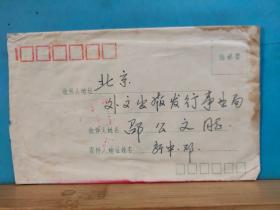 贴邮票
北京
收件人地址
外文出版发行事业局
收件人姓名
邵公文同志
寄件人地址姓名